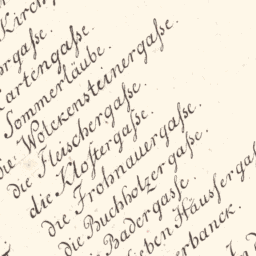 Kirch
gaſse.
Gartengaſse.
Sommerläube.
die Wolckensteinergaſse.
die Fleischergaſse.
die Kloſtergaſse.
die Frohnauergaſse.
die Buchholzergaſse.
die Badergaſse.
ſieben Häuſserga
erbanck.